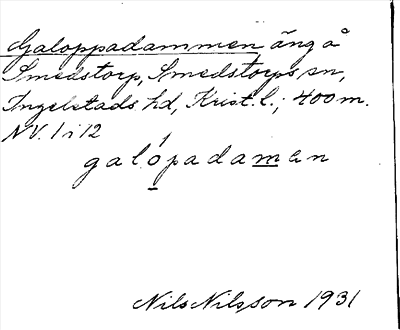 Galoppadammen äng å
Smedstorp, Smedstorps sn,
Ingelstads hd, Krist. l.; 400 m.
NV. 1 i 12
galo̱padam̱en
Nils Nilsson 1931